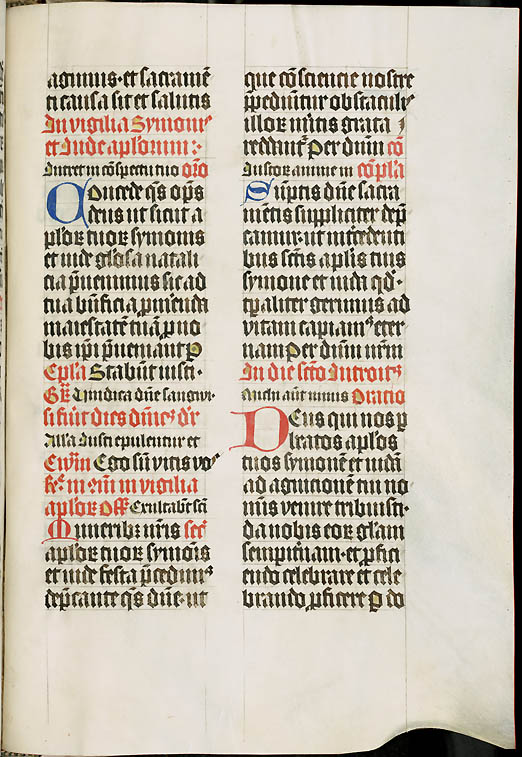 agimus·et sacramē
ti causa sit et salutis
In vigilia Symonis
et Iude apl'orum :·
Intret in cōspectu tuo orō
Concede qs̄ op̄s
deus ut sicut a
pl'oꝝ tuoꝝ symonis
et iude gl'osa natali
cia p̄uenimus sic ad
tua bn̄ficia p̄mꝫenda
maiestatē tuā p̄ no
bis ip̄i p̄ueniant P
Epl'a Stabūt iusti·
Gr̄ Uindica dn̄e sangwi·
si fu̅it dies dn̄icꝰ d'r
All'a Iusti epulentur et
Ew̄m Ego sū vitis vo
in vigilia
apl'oꝝ Off̄ Exultabūt sc̄i
Muneribꝫ nr̄is sec̄
apl'oꝝ tuoꝝ symōis
et iude festa p̄cedimꝰ
dep̄cante qs̄ dn̄e·ut
que cōsciencie nostre
p̄pediūtur obstaculis
illoꝝ mꝰitis grata
reddant᷑ Per dn̄m cō
Iustoꝝ anime in cōpl'a
Sūptis dn̄e sacra
mētis suppliciter dep̄
camur·ut int̄cedenti
bus sc̄tis apl'is tuis
symone et iuda qd̄·
tp̄aliter gerimus ad
vitam capiamꝰ eter
nam Per dn̄m nr̄m
In die sc̄to Introitꝰ
Michi aūt nimis Oratio
Deus qui nos p̄
beatos apl'os
tuos symonē et iudā
ad agnitionē tui no
mīs venire tribuisti·
da nobis eoꝝ gl'iam
sempit̄nam·et p̄fici
endo celebrare et cele
brando p̄ficere P do